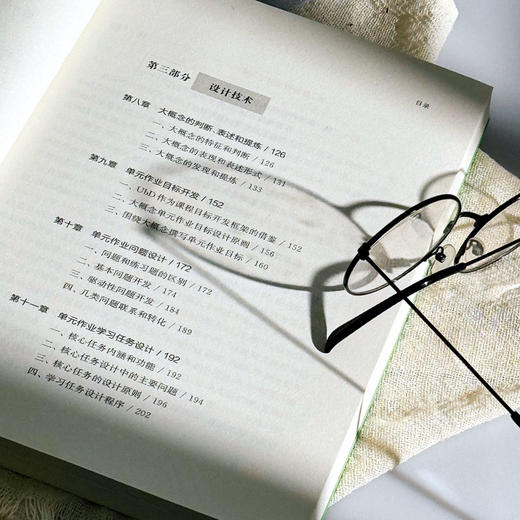 目录
第三部分 设计技术
第八章 大概念的判断、表述和提炼 / 126
一、大概念的特征和判断 / 126
二、大概念的表现和表述形式 / 131
三、大概念的发现和提炼 / 133
第九章 单元作业目标开发 / 152
一、UbD作为课程目标开发框架的借鉴 / 152
二、大概念单元作业目标设计原则 / 156
三、围绕大概念撰写单元作业目标 / 160
第十章 单元作业问题设计 / 172
一、问题和练习题的区别 / 172
二、基本问题开发 / 174
三、驱动性问题开发 / 184
四、几类问题联系和转化 / 189
第十一章 单元作业学习任务设计 / 192
一、核心任务内涵和功能 / 192
二、核心任务设计中的主要问题 / 194
三、核心任务的设计原则 / 196
四、学习任务设计程序 / 202